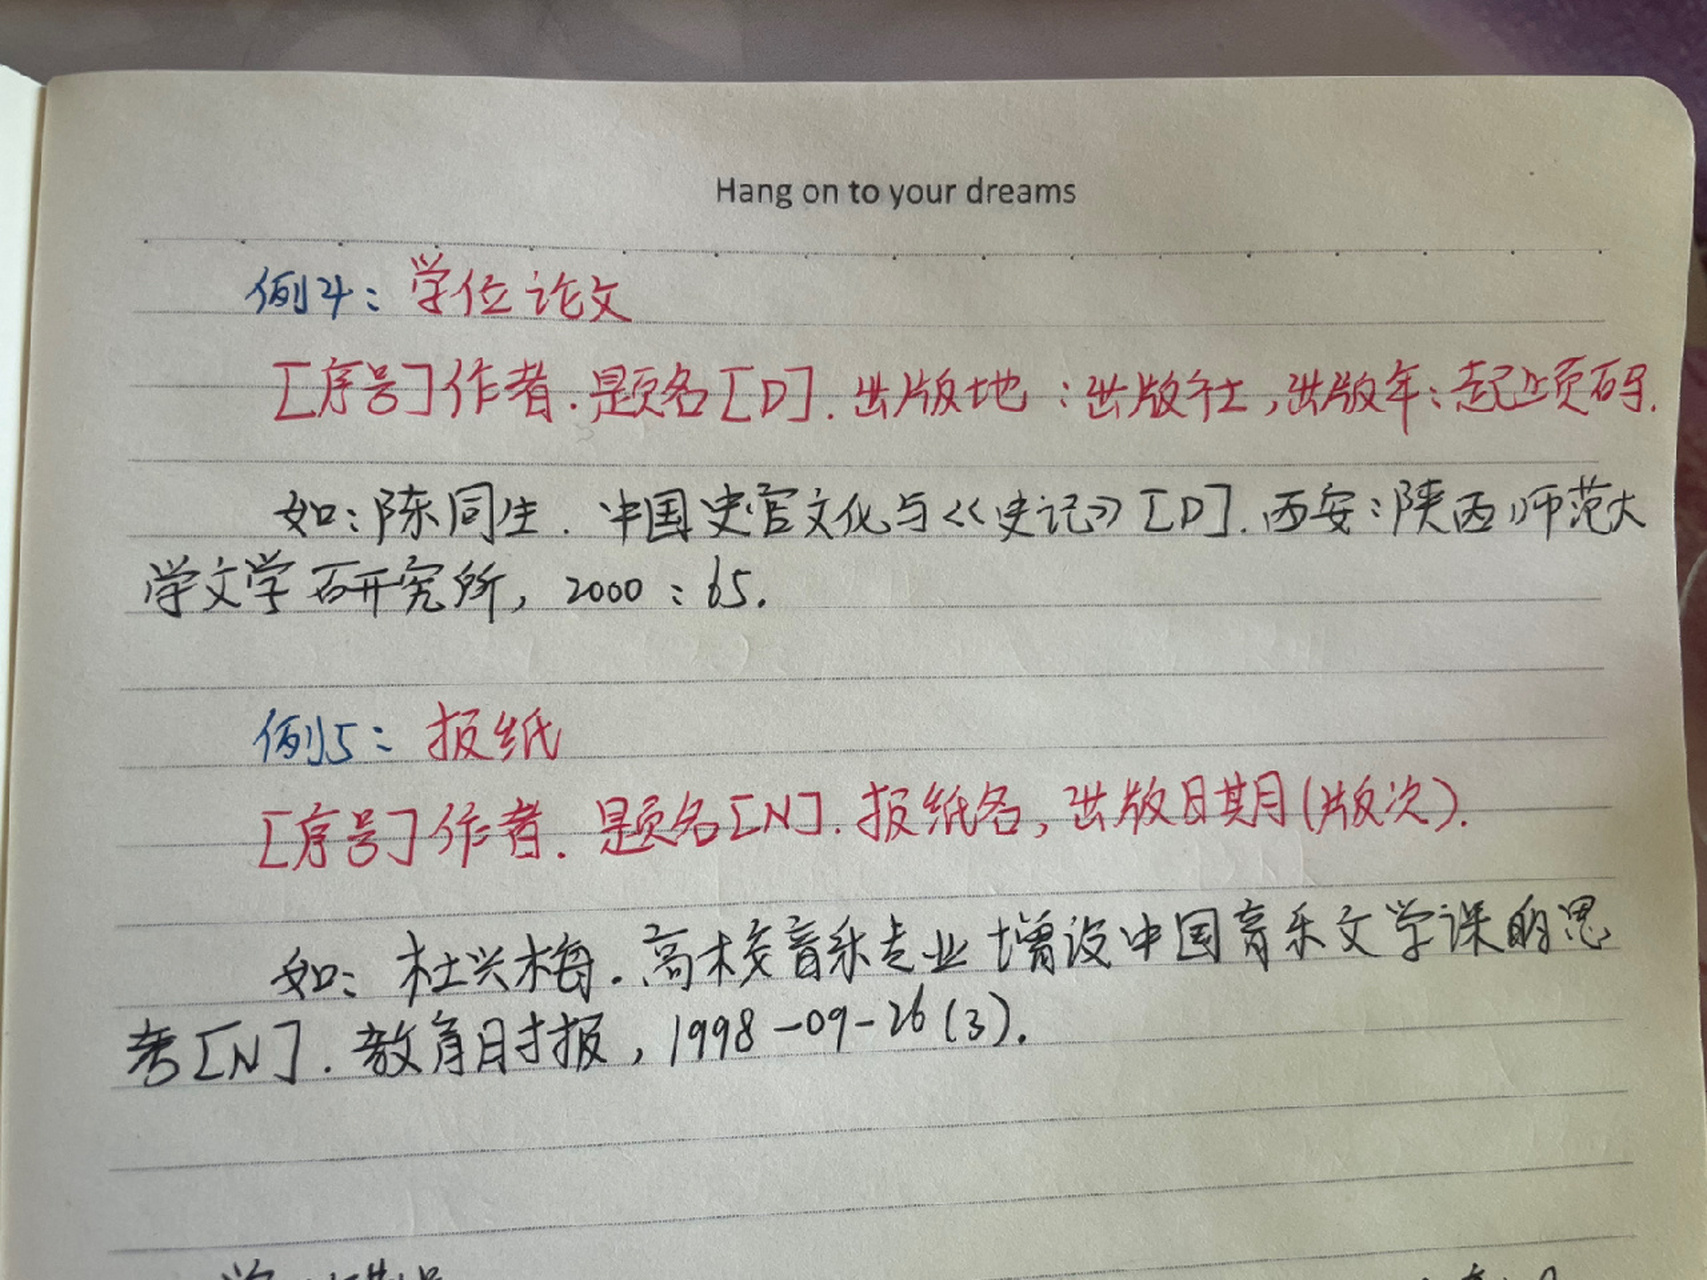 Hang on to your dreams
例4：学位论文
[序号]作者.题名[D].出版地：出版社,出版年：起止页码.
如：陈同生.中国史官文化与《史记》[D].西安：陕西师范大
学文学研究所，2000：65.
例5：报纸
[序号]作者.题名[N].报纸名,出版日期(版次).
如：杜兴梅.高校音乐专业增设中国音乐文学课的思
考[N].教育时报，1998-09-26(3).